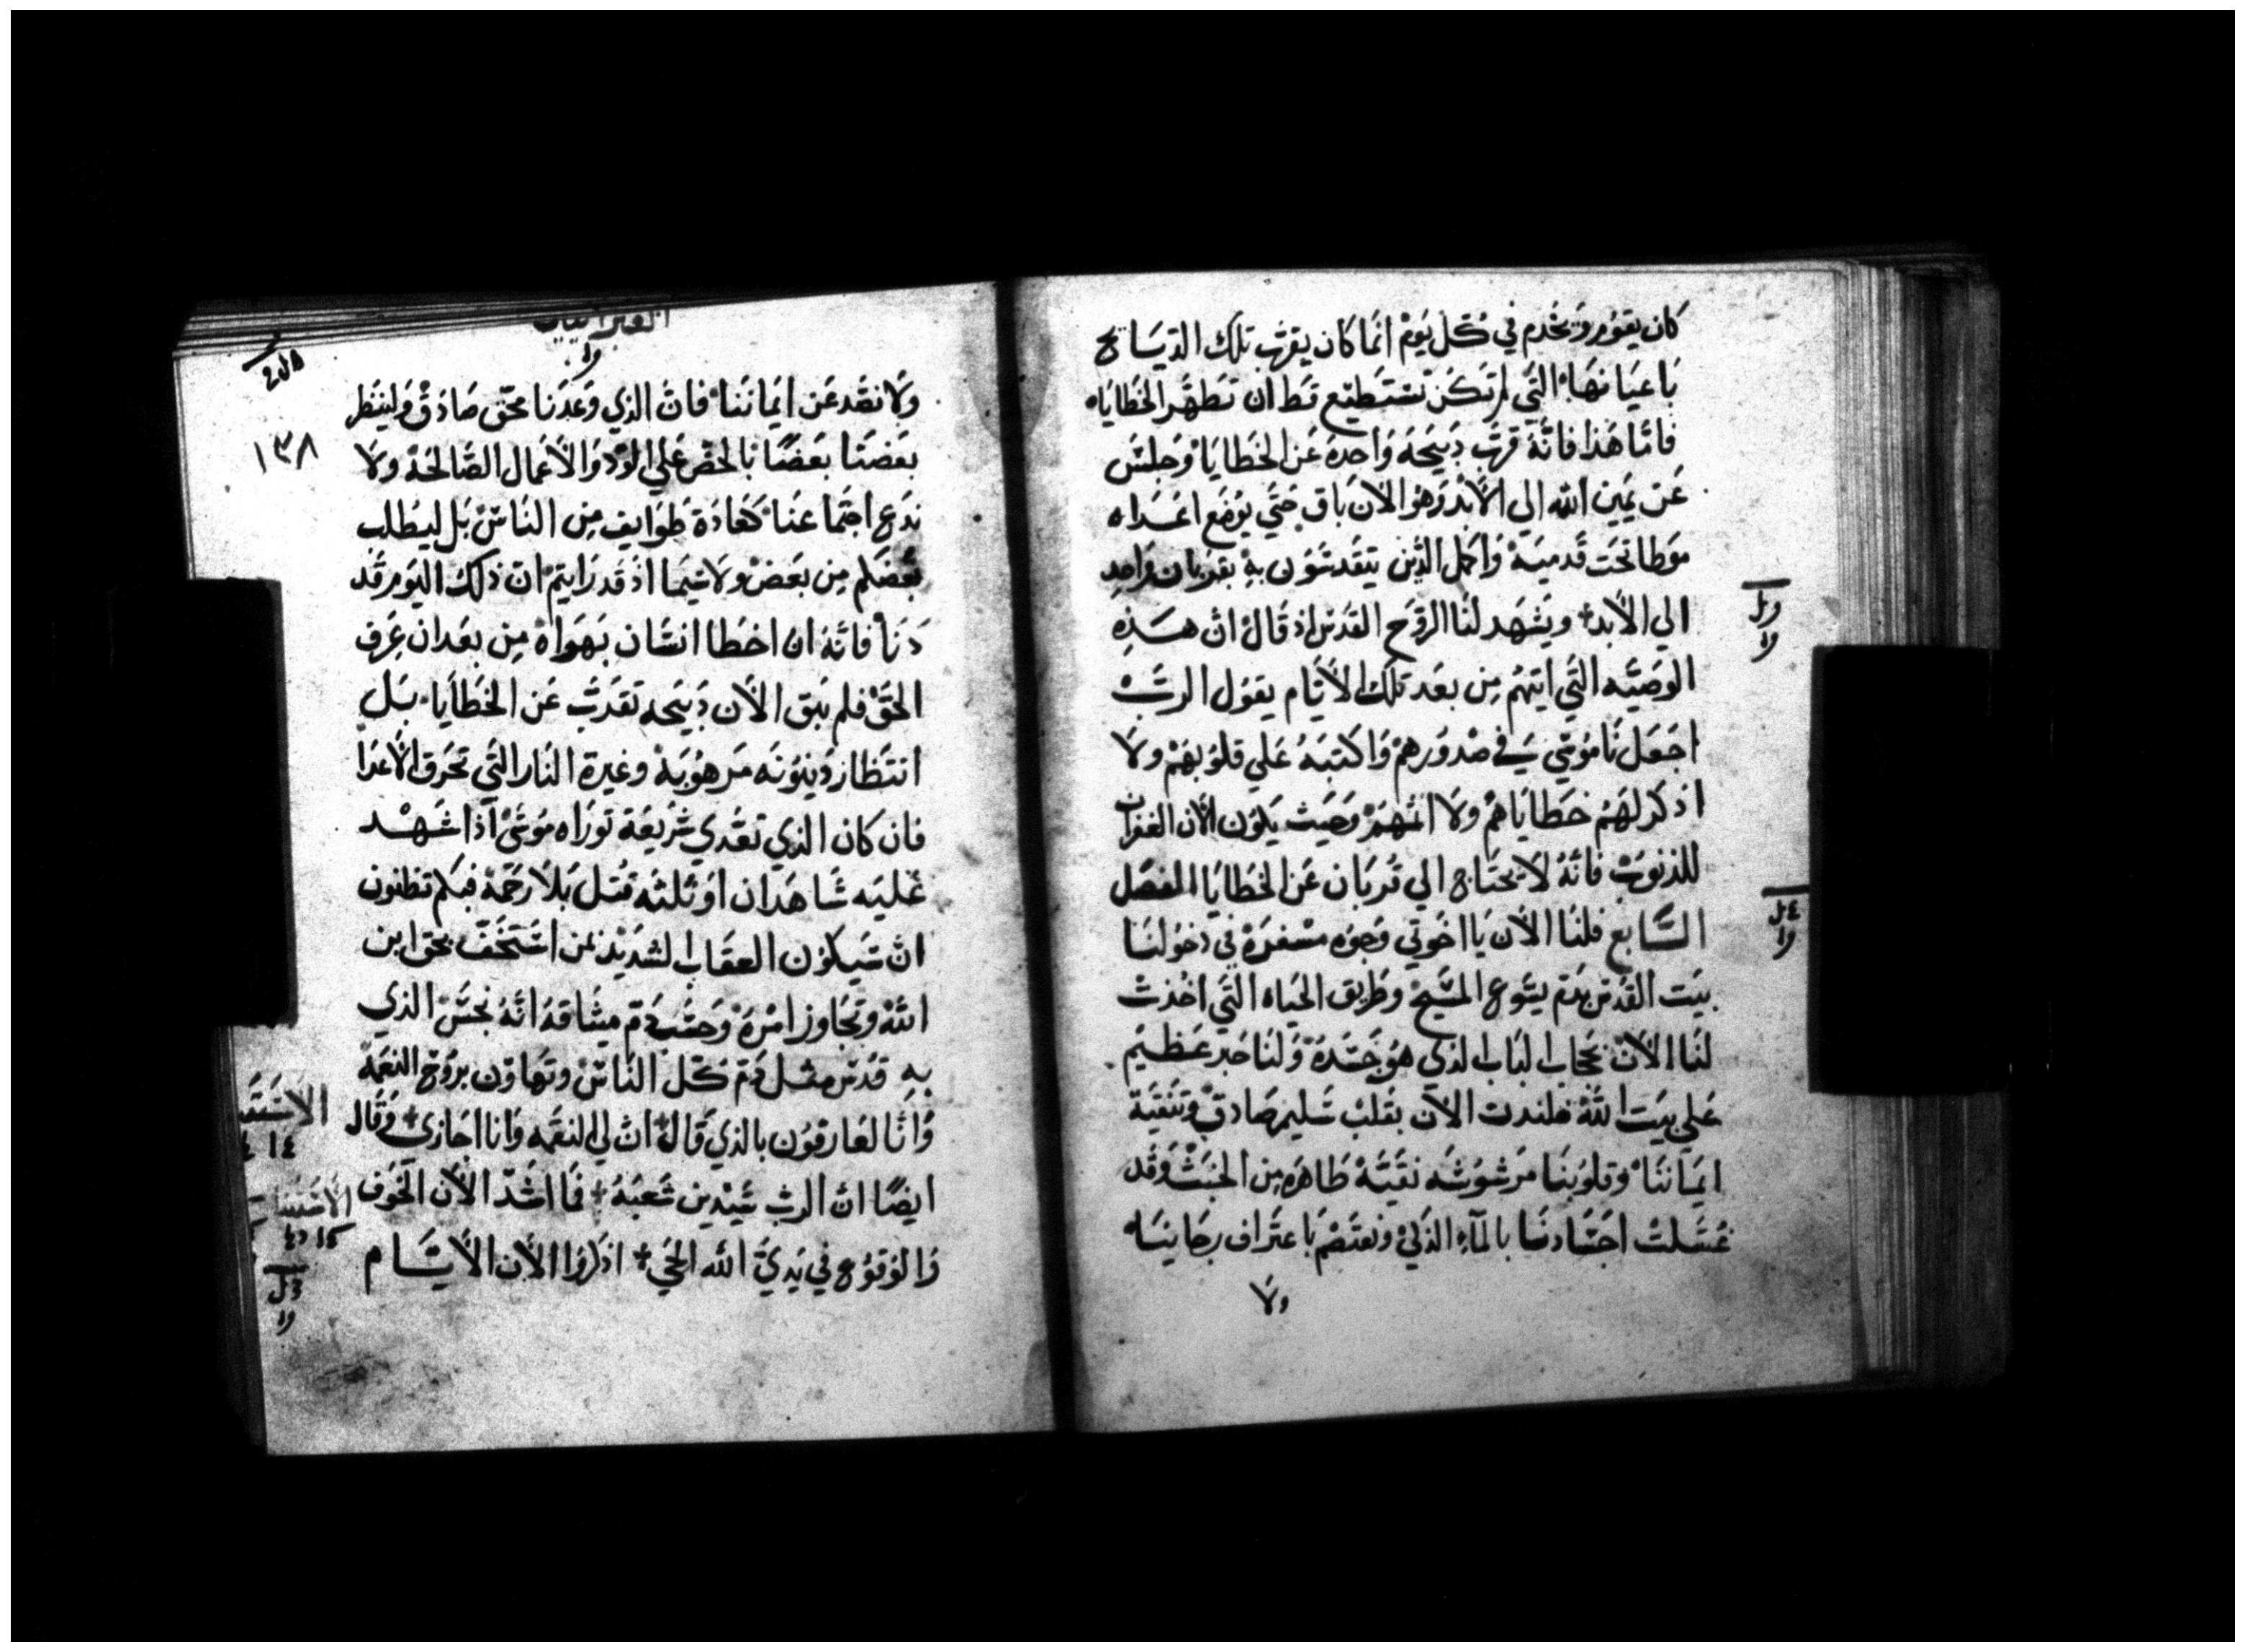 كان يقوم ويخدم في كل يوم انما كان يقرب تلك الذبايح
باعيانها التي لم تكن تستطيع قط ان تطهر الخطايا
فاما هذا فانه قرب ذبيحه واحدة عن الخطايا وجلس
عن يمين الله الي الابد وهو الان باق حتي يوضع اعداه
موطا تحت قدميه واكمل الذين يتقدسون به بقربان واحد
الي الابد ويشهد لنا الروح القدس اذ قال ان هذه
الوصيه التي اتيهم من بعد تلك الايام يقول الرب
اجعل ناموسي في صدورهم واكتبه علي قلوبهم ولا
اذكر لهم خطاياهم ولا اثمهم وحيث يكون الان الغفران
للذنوب فانه لا يحتاج الي قربان عن الخطايا الفصل
السابع فلنا الان يا اخوتي وجوه مسفرة في دخولنا
بيت القدس بدم يسوع المسيح وطريق الحياه التي اخذت
لنا الان بحجاب الباب الذي هو جسده ولنا حبر عظيم
علي بيت الله فلندن الان بقلب سليم صادق وتنقية
ايماننا وقلوبنا مرشوشه نقيه طاهره من الخبث وقد
غسلت اجسادنا بالماء الذكي ونعتصم باعتراف رجانيا
ولا
العبرانيين
١٣٨
ولا نصد عن ايماننا فان الذي وعدنا محق صادق ولينظر
بعضنا بعضا بالحض علي الود والاعمال الصالحة ولا
ندع اجتماعنا كعادة طوايف من الناس بل ليطلب
بعضكم من بعض ولا سيما اذ قد رايتم ان ذلك اليوم قد
دنا فانه ان اخطا انسان بهواه من بعد ان عرف
الحق فلم يبق الان ذبيحه تقدب عن الخطايا بل
انتظار دينونه مرهوبه وغيرة النار التي تحرق الاعدا
فان كان الذي تعدي شريعة توراه موسي اذا شهد
عليه شاهدان او ثلثه قتل بلا رحمة فبكم تظنون
ان سيكون العقاب الشديد لمن استخف بحق ابن
الله وتجاوز امره وحسب دم ميثاقه انه نجس الذي
به قدس مثل دم كل الناس وتهاون بروح النعمة
وانا لعارفون بالذي قال ان لي النقمه وانا اجازي وقال
ايضا ان الرب سيدين شعبه فما اشد الان الخوف
والوقوع في يدي الله الحي اذكروا الان الايام